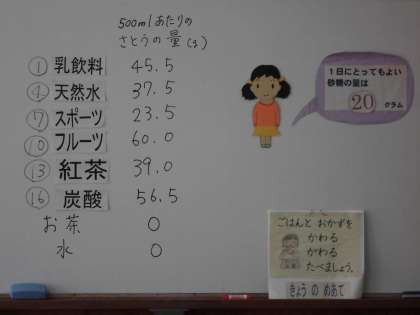 500mlあたりの
さとうの量(g)
① 乳飲料 45.5
④ 天然水 37.5
⑦ スポーツ 23.5
⑩ フルーツ 60.0
⑬ 紅茶 39.0
⑯ 炭酸 56.5
お茶 0
水 0
1日にとってもよい
砂糖の量は
20 グラム
ごはんと おかずを
かわる
かわる
たべましょう。
きょう の めあて